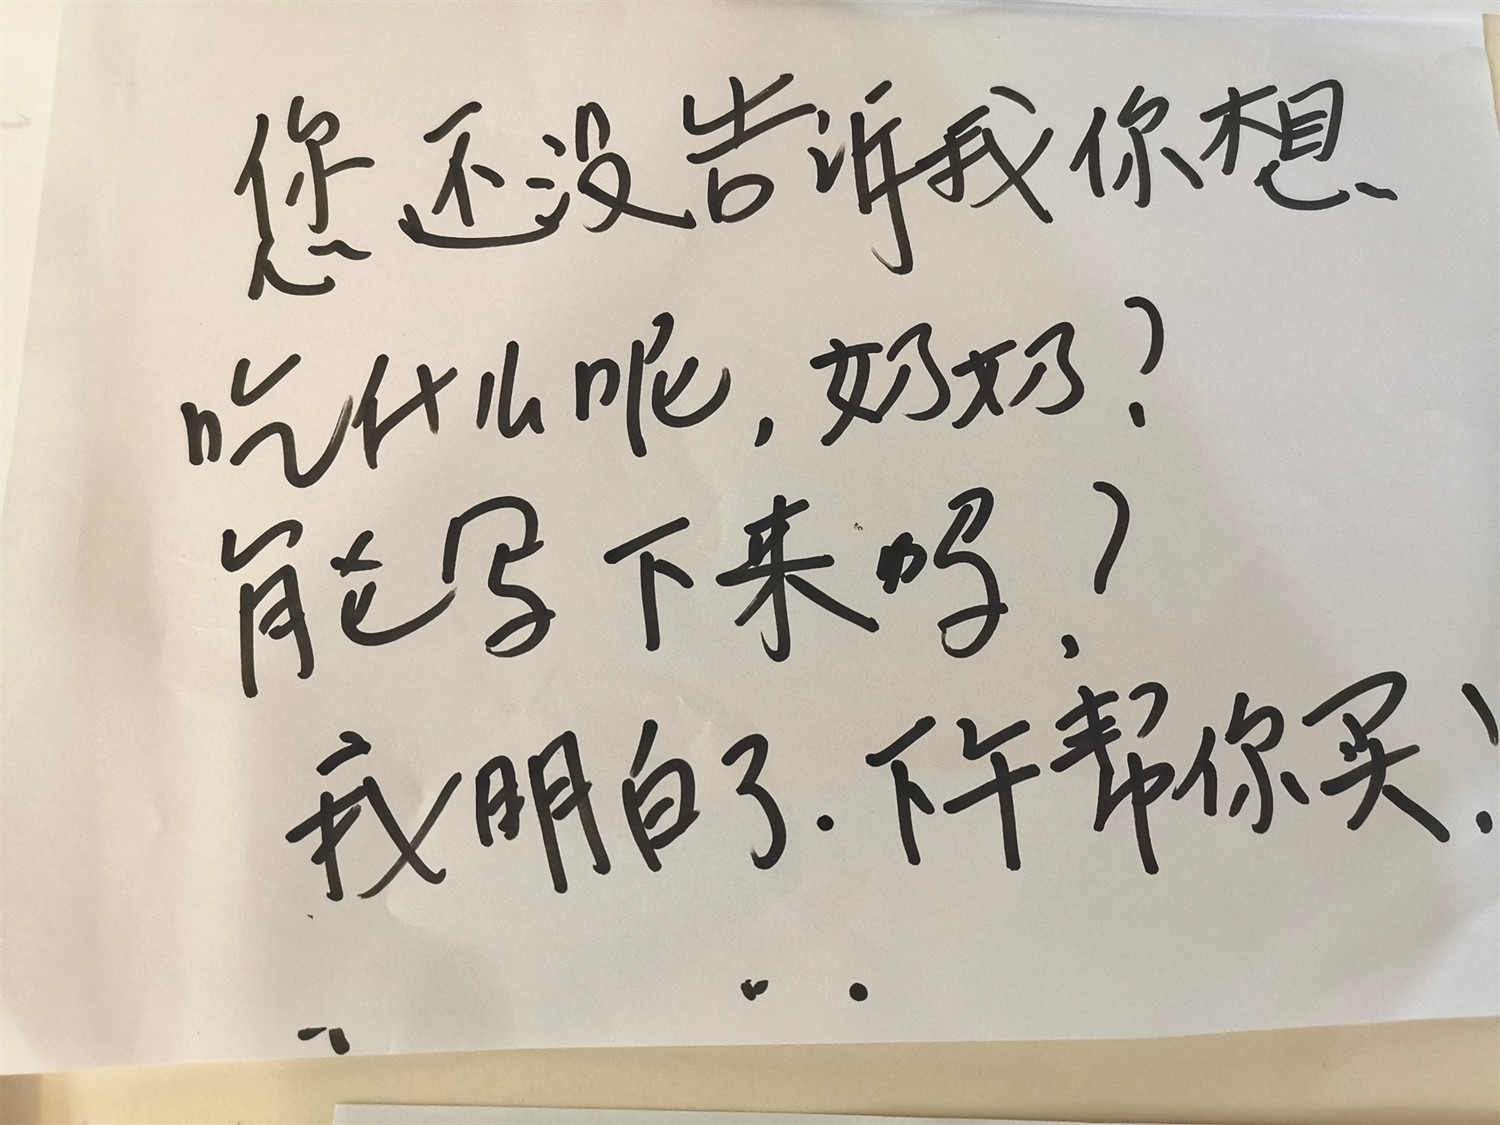 您还没告诉我你想
吃什么呢，奶奶？
能写下来吗？
我明白了．下午帮你买！